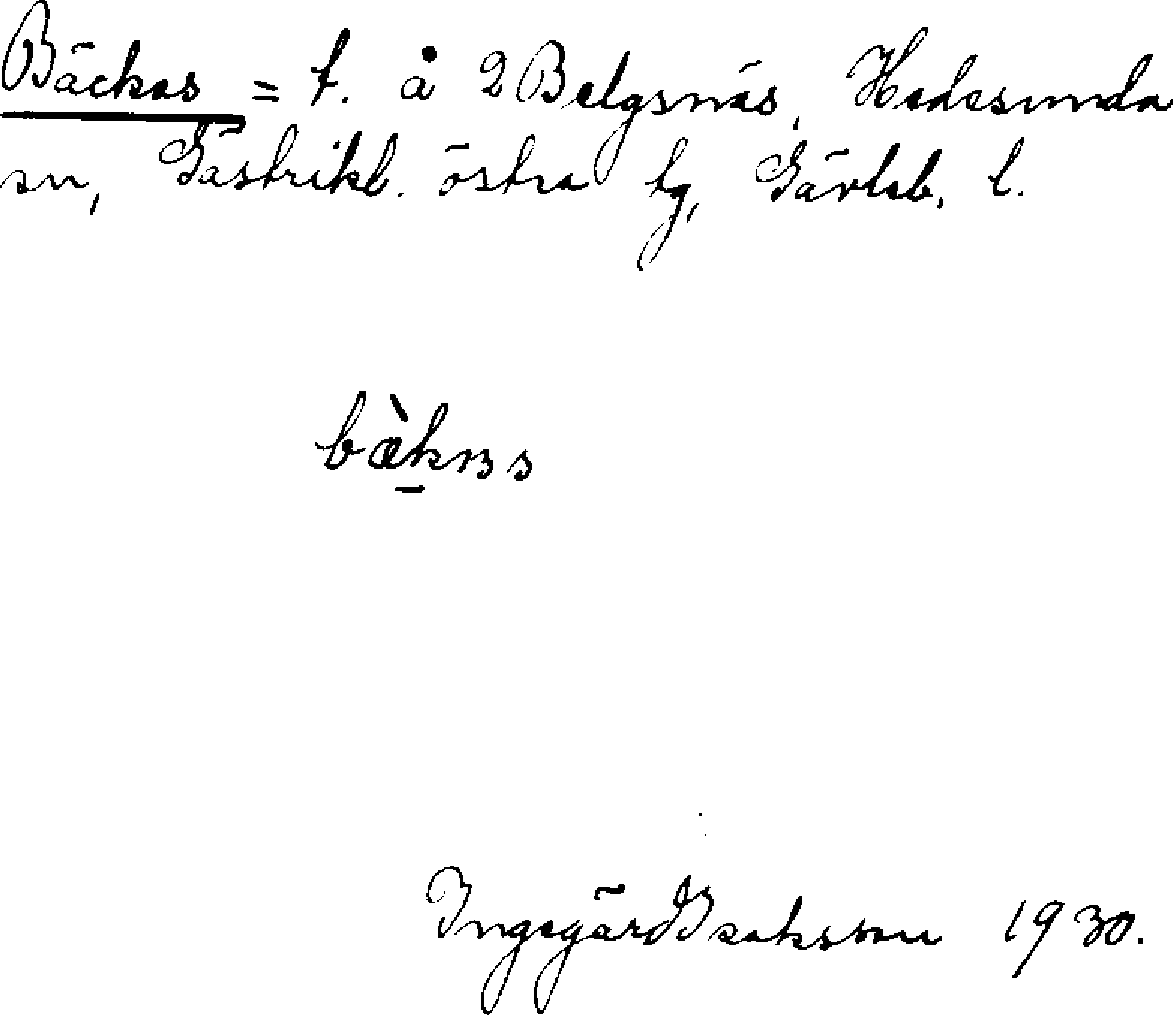 Bäckas = t. å 2 Belgsnäs, Hedesunda
sn, Gästrikl. östra tg, Gävleb. l.
Ingegärd Isaksson 1930.